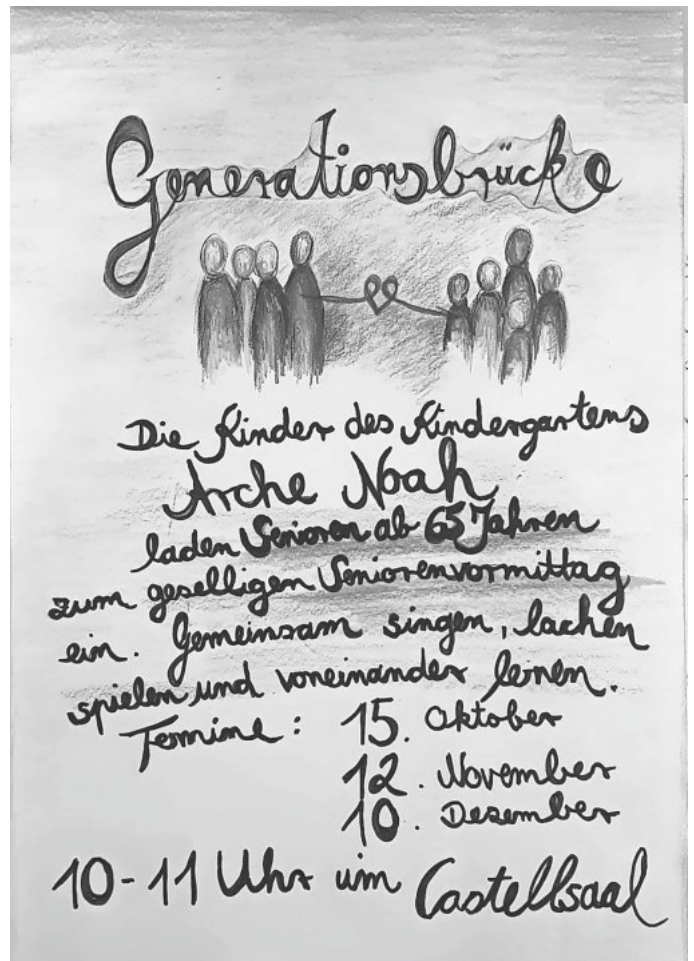 Generationsbrücke
Die Kinder des Kindergartens
Arche Noah
laden Senioren ab 65 Jahren
zum geselligen Seniorenvormittag
ein. Gemeinsam singen, lachen
spielen und voneinander lernen.
Termine: 15. Oktober
12. November
10. Dezember
10-11 Uhr im Castellsaal